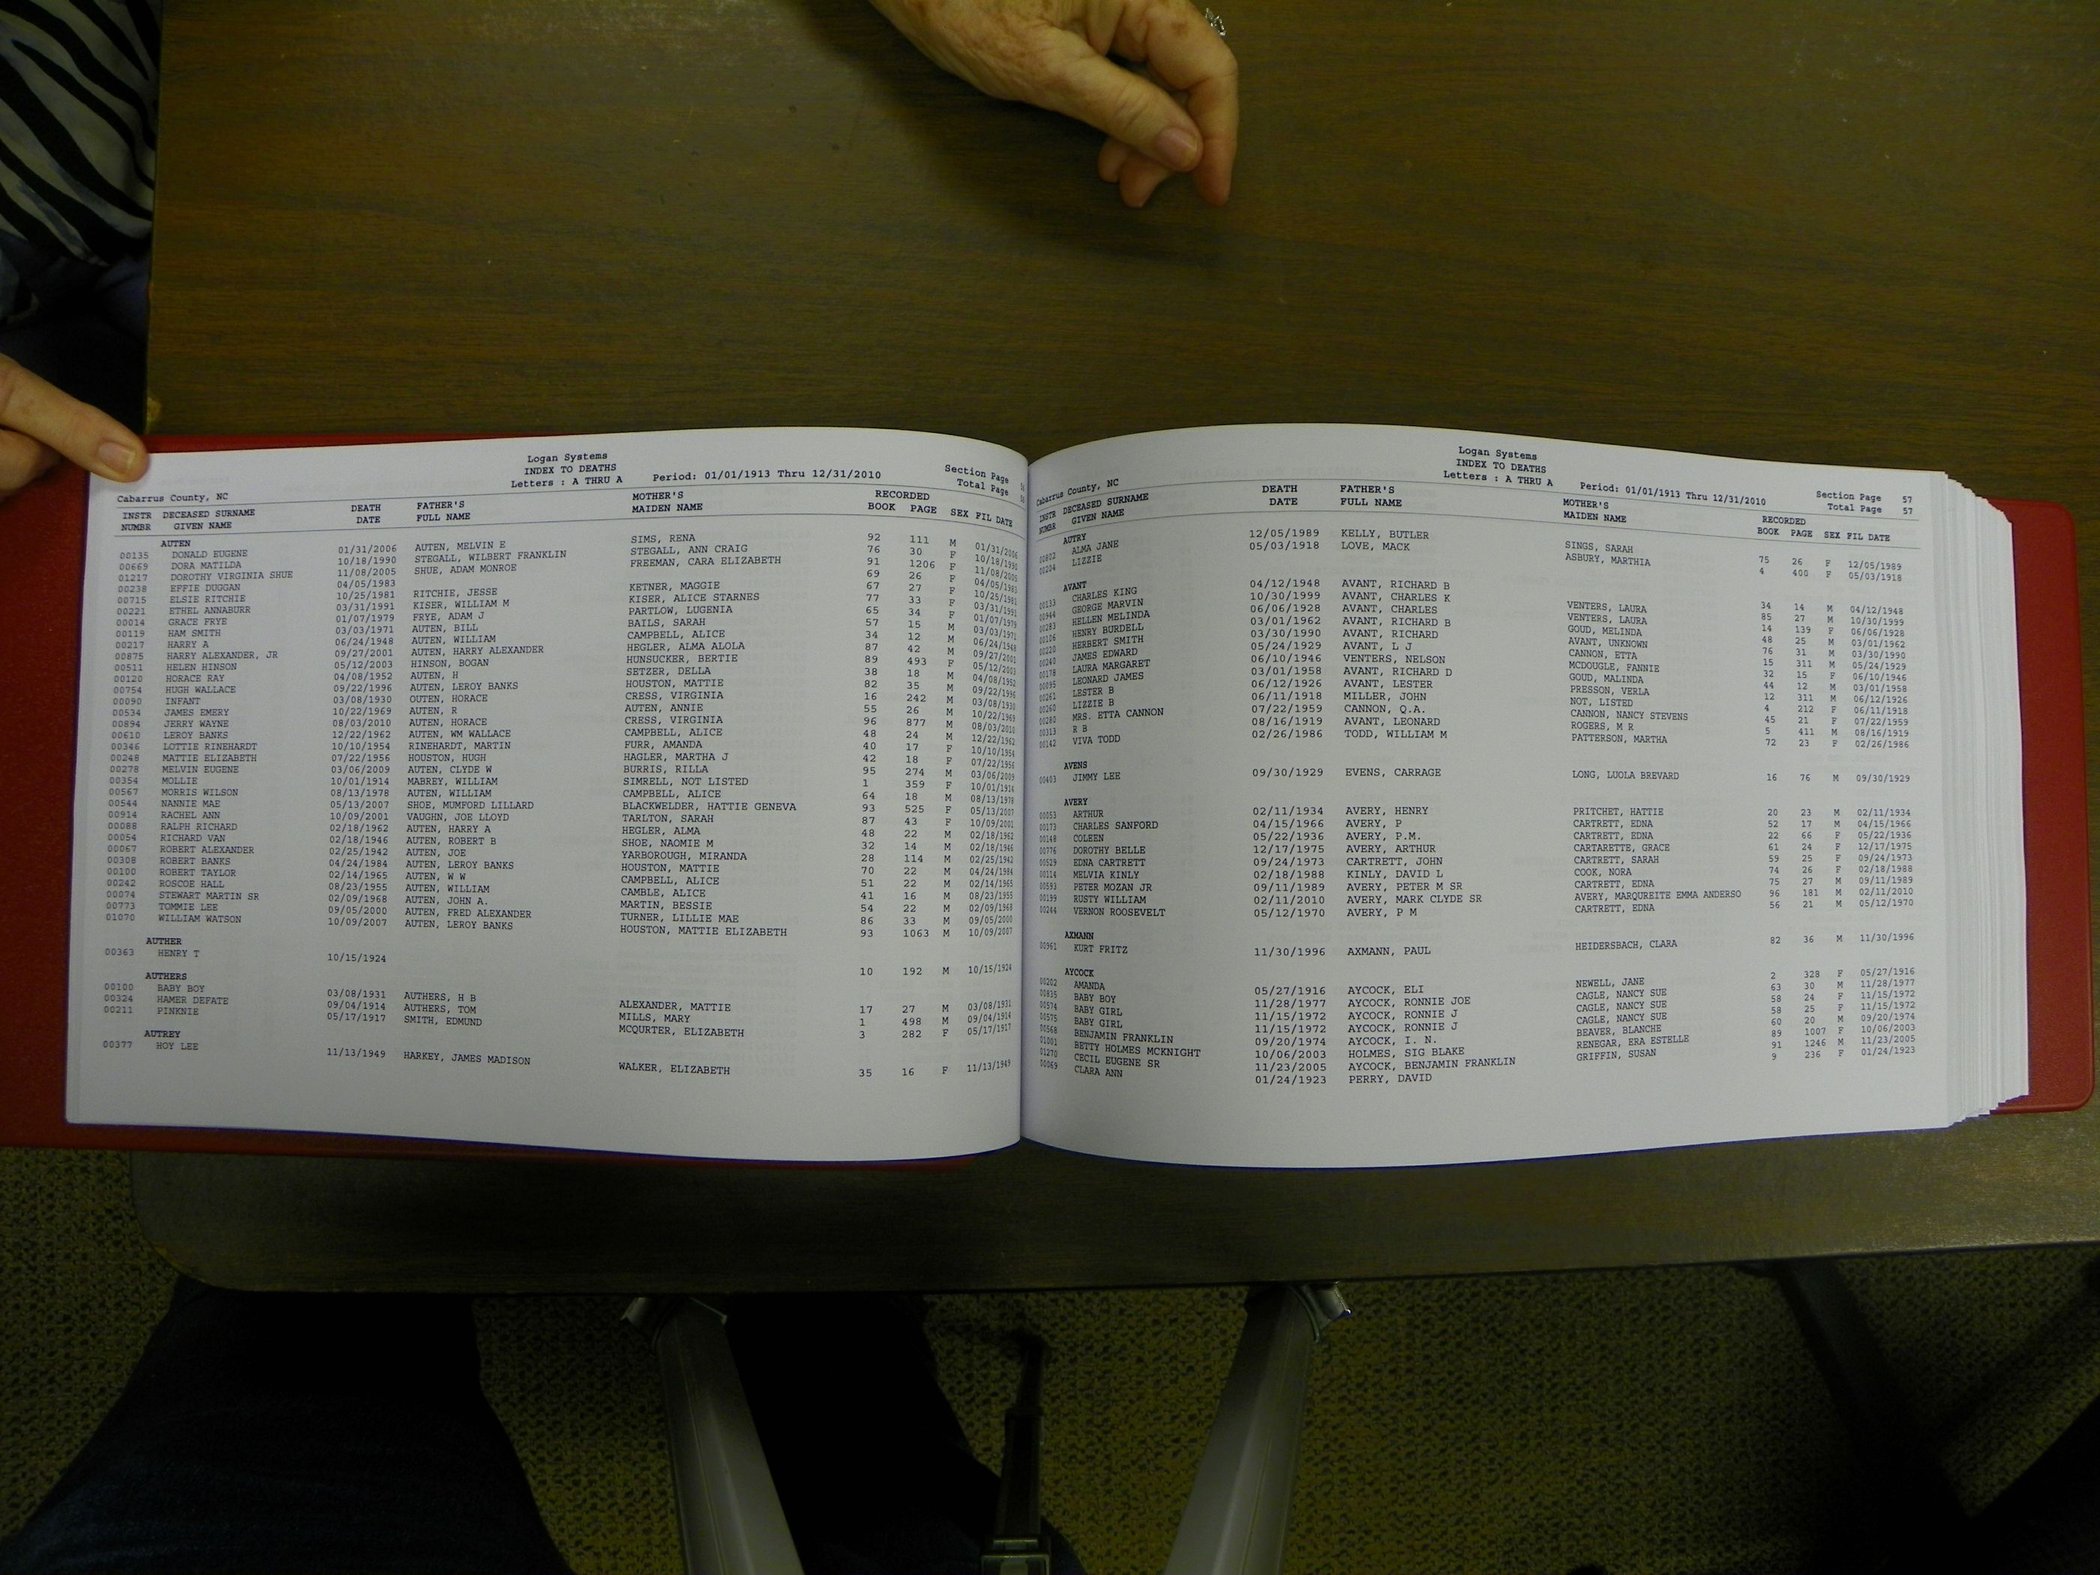 Logan Systems
INDEX TO DEATHS
Letters : A THRU A Period: 01/01/1913 Thru 12/31/2010 Section Page
Total Page
Cabarrus County, NC
INSTR DECEASED SURNAME DEATH FATHER'S MOTHER'S RECORDED
NUMBR GIVEN NAME DATE FULL NAME MAIDEN NAME BOOK PAGE SEX FIL DATE
AUTEN
00135 DONALD EUGENE 01/31/2006 AUTEN, MELVIN E SIMS, RENA 92 111 M 01/31/2006
00669 DORA MATILDA 10/18/1990 STEGALL, WILBERT FRANKLIN STEGALL, ANN CRAIG 76 30 F 10/18/1990
01217 DOROTHY VIRGINIA SHUE 11/08/2005 SHUE, ADAM MONROE FREEMAN, CARA ELIZABETH 91 1206 F 11/08/2005
00238 EFFIE DUGGAN 04/05/1983 69 26 F 04/05/1983
00715 ELSIE RITCHIE 10/25/1981 RITCHIE, JESSE KETNER, MAGGIE 67 27 F 10/25/1981
00221 ETHEL ANNABURR 03/31/1991 KISER, WILLIAM M KISER, ALICE STARNES 77 33 F 03/31/1991
00014 GRACE FRYE 01/07/1979 FRYE, ADAM J PARTLOW, LUGENIA 65 34 F 01/07/1979
00119 HAM SMITH 03/03/1971 AUTEN, BILL BAILS, SARAH 57 15 M 03/03/1971
00217 HARRY A 06/24/1948 AUTEN, WILLIAM CAMPBELL, ALICE 34 12 M 06/24/1948
00875 HARRY ALEXANDER, JR 09/27/2001 AUTEN, HARRY ALEXANDER HEGLER, ALMA ALOLA 87 42 M 09/27/2001
00511 HELEN HINSON 05/12/2003 HINSON, BOGAN HUNSUCKER, BERTIE 89 493 F 05/12/2003
00120 HORACE RAY 04/08/1952 AUTEN, H SETZER, DELLA 38 18 M 04/08/1952
00754 HUGH WALLACE 09/22/1996 AUTEN, LEROY BANKS HOUSTON, MATTIE 82 35 M 09/22/1996
00090 INFANT 03/08/1930 OUTEN, HORACE CRESS, VIRGINIA 16 242 M 03/08/1930
00534 JAMES EMERY 10/22/1969 AUTEN, R AUTEN, ANNIE 55 26 M 10/22/1969
00894 JERRY WAYNE 08/03/2010 AUTEN, HORACE CRESS, VIRGINIA 96 877 M 08/03/2010
00610 LEROY BANKS 12/22/1962 AUTEN, WM WALLACE CAMPBELL, ALICE 48 24 M 12/22/1962
00346 LOTTIE RINEHARDT 10/10/1954 RINEHARDT, MARTIN FURR, AMANDA 40 17 F 10/10/1954
00248 MATTIE ELIZABETH 07/22/1956 HOUSTON, HUGH HAGLER, MARTHA J 42 18 F 07/22/1956
00278 MELVIN EUGENE 03/06/2009 AUTEN, CLYDE W BURRIS, RILLA 95 274 M 03/06/2009
00354 MOLLIE 10/01/1914 MABREY, WILLIAM SIMRELL, NOT LISTED 1 359 F 10/01/1914
00567 MORRIS WILSON 08/13/1978 AUTEN, WILLIAM CAMPBELL, ALICE 64 18 M 08/13/1978
00544 NANNIE MAE 05/13/2007 SHOE, MUMFORD LILLARD BLACKWELDER, HATTIE GENEVA 93 525 F 05/13/2007
00914 RACHEL ANN 10/09/2001 VAUGHN, JOE LLOYD TARLTON, SARAH 87 43 F 10/09/2001
00088 RALPH RICHARD 02/18/1962 AUTEN, HARRY A HEGLER, ALMA 48 22 M 02/18/1962
00054 RICHARD VAN 02/18/1946 AUTEN, ROBERT B SHOE, NAOMIE M 32 14 M 02/18/1946
00067 ROBERT ALEXANDER 02/25/1942 AUTEN, JOE YARBOROUGH, MIRANDA 28 114 M 02/25/1942
00308 ROBERT BANKS 04/24/1984 AUTEN, LEROY BANKS HOUSTON, MATTIE 70 22 M 04/24/1984
00100 ROBERT TAYLOR 02/14/1965 AUTEN, W W CAMPBELL, ALICE 51 22 M 02/14/1965
00242 ROSCOE HALL 08/23/1955 AUTEN, WILLIAM CAMBLE, ALICE 41 16 M 08/23/1955
00074 STEWART MARTIN SR 02/09/1968 AUTEN, JOHN A. MARTIN, BESSIE 54 22 M 02/09/1968
00773 TOMMIE LEE 09/05/2000 AUTEN, FRED ALEXANDER TURNER, LILLIE MAE 86 33 M 09/05/2000
01070 WILLIAM WATSON 10/09/2007 AUTEN, LEROY BANKS HOUSTON, MATTIE ELIZABETH 93 1063 M 10/09/2007
AUTHER
00363 HENRY T 10/15/1924 10 192 M 10/15/1924
AUTHERS
00100 BABY BOY 03/08/1931 AUTHERS, H B ALEXANDER, MATTIE 17 27 M 03/08/1931
00324 HAMER DEFATE 09/04/1914 AUTHERS, TOM MILLS, MARY 1 498 M 09/04/1914
00211 PINKNIE 05/17/1917 SMITH, EDMUND MCQURTER, ELIZABETH 3 282 F 05/17/1917
AUTREY
00377 HOY LEE 11/13/1949 HARKEY, JAMES MADISON WALKER, ELIZABETH 35 16 F 11/13/1949
Logan Systems
INDEX TO DEATHS
Letters : A THRU A Period: 01/01/1913 Thru 12/31/2010 Section Page 57
Total Page 57
Cabarrus County, NC
INSTR DECEASED SURNAME DEATH FATHER'S MOTHER'S RECORDED
NUMBR GIVEN NAME DATE FULL NAME MAIDEN NAME BOOK PAGE SEX FIL DATE
AUTRY
00802 ALMA JANE 12/05/1989 KELLY, BUTLER SINGS, SARAH 75 26 F 12/05/1989
00204 LIZZIE 05/03/1918 LOVE, MACK ASBURY, MARTHIA 4 400 F 05/03/1918
AVANT
00133 CHARLES KING 04/12/1948 AVANT, RICHARD B VENTERS, LAURA 34 14 M 04/12/1948
00944 GEORGE MARVIN 10/30/1999 AVANT, CHARLES K VENTERS, LAURA 85 27 M 10/30/1999
00283 HELLEN MELINDA 06/06/1928 AVANT, CHARLES GOUD, MELINDA 14 139 F 06/06/1928
00106 HENRY BURDELL 03/01/1962 AVANT, RICHARD B AVANT, UNKNOWN 48 25 M 03/01/1962
00220 HERBERT SMITH 03/30/1990 AVANT, RICHARD CANNON, ETTA 76 31 M 03/30/1990
00240 JAMES EDWARD 05/24/1929 AVANT, L J MCDOUGLE, FANNIE 15 311 M 05/24/1929
00178 LAURA MARGARET 06/10/1946 VENTERS, NELSON GOUD, MALINDA 32 15 F 06/10/1946
00095 LEONARD JAMES 03/01/1958 AVANT, RICHARD D PRESSON, VERLA 44 12 M 03/01/1958
00261 LESTER B 06/12/1926 AVANT, LESTER 12 311 M 06/12/1926
00260 LIZZIE B 06/11/1918 MILLER, JOHN NOT, LISTED 4 212 F 06/11/1918
00280 MRS. ETTA CANNON 07/22/1959 CANNON, Q.A. CANNON, NANCY STEVENS 45 21 F 07/22/1959
00313 R B 08/16/1919 AVANT, LEONARD ROGERS, M R 5 411 M 08/16/1919
00142 VIVA TODD 02/26/1986 TODD, WILLIAM M PATTERSON, MARTHA 72 23 F 02/26/1986
AVENS
00403 JIMMY LEE 09/30/1929 EVENS, CARRAGE LONG, LUOLA BREVARD 16 76 M 09/30/1929
AVERY
00053 ARTHUR 02/11/1934 AVERY, HENRY PRITCHET, HATTIE 20 23 M 02/11/1934
00173 CHARLES SANFORD 04/15/1966 AVERY, P CARTRETT, EDNA 52 17 M 04/15/1966
00148 COLEEN 05/22/1936 AVERY, P.M. CARTRETT, EDNA 22 66 F 05/22/1936
00776 DOROTHY BELLE 12/17/1975 AVERY, ARTHUR CARTARETTE, GRACE 61 24 F 12/17/1975
00529 EDNA CARTRETT 09/24/1973 CARTRETT, JOHN CARTRETT, SARAH 59 25 F 09/24/1973
00114 MELVIA KINLY 02/18/1988 KINLY, DAVID L COOK, NORA 74 26 F 02/18/1988
00593 PETER MOZAN JR 09/11/1989 AVERY, PETER M SR CARTRETT, EDNA 75 27 M 09/11/1989
00199 RUSTY WILLIAM 02/11/2010 AVERY, MARK CLYDE SR AVERY, MARQUREITE EMMA ANDERSO 96 181 M 02/11/2010
00244 VERNON ROOSEVELT 05/12/1970 AVERY, P M CARTRETT, EDNA 56 21 M 05/12/1970
AXMANN
00961 KURT FRITZ 11/30/1996 AXMANN, PAUL HEIDERSBACH, CLARA 82 36 M 11/30/1996
AYCOCK
00202 AMANDA 05/27/1916 AYCOCK, ELI NEWELL, JANE 2 328 F 05/27/1916
00835 BABY BOY 11/28/1977 AYCOCK, RONNIE JOE CAGLE, NANCY SUE 63 30 M 11/28/1977
00574 BABY GIRL 11/15/1972 AYCOCK, RONNIE J CAGLE, NANCY SUE 58 24 F 11/15/1972
00575 BABY GIRL 11/15/1972 AYCOCK, RONNIE J CAGLE, NANCY SUE 58 25 F 11/15/1972
00568 BENJAMIN FRANKLIN 09/20/1974 AYCOCK, I. N. 60 20 M 09/20/1974
01001 BETTY HOLMES MCKNIGHT 10/06/2003 HOLMES, SIG BLAKE BEAVER, BLANCHE 89 1007 F 10/06/2003
01270 CECIL EUGENE SR 11/23/2005 AYCOCK, BENJAMIN FRANKLIN RENEGAR, ERA ESTELLE 91 1246 M 11/23/2005
00069 CLARA ANN 01/24/1923 PERRY, DAVID GRIFFIN, SUSAN 9 236 F 01/24/1923